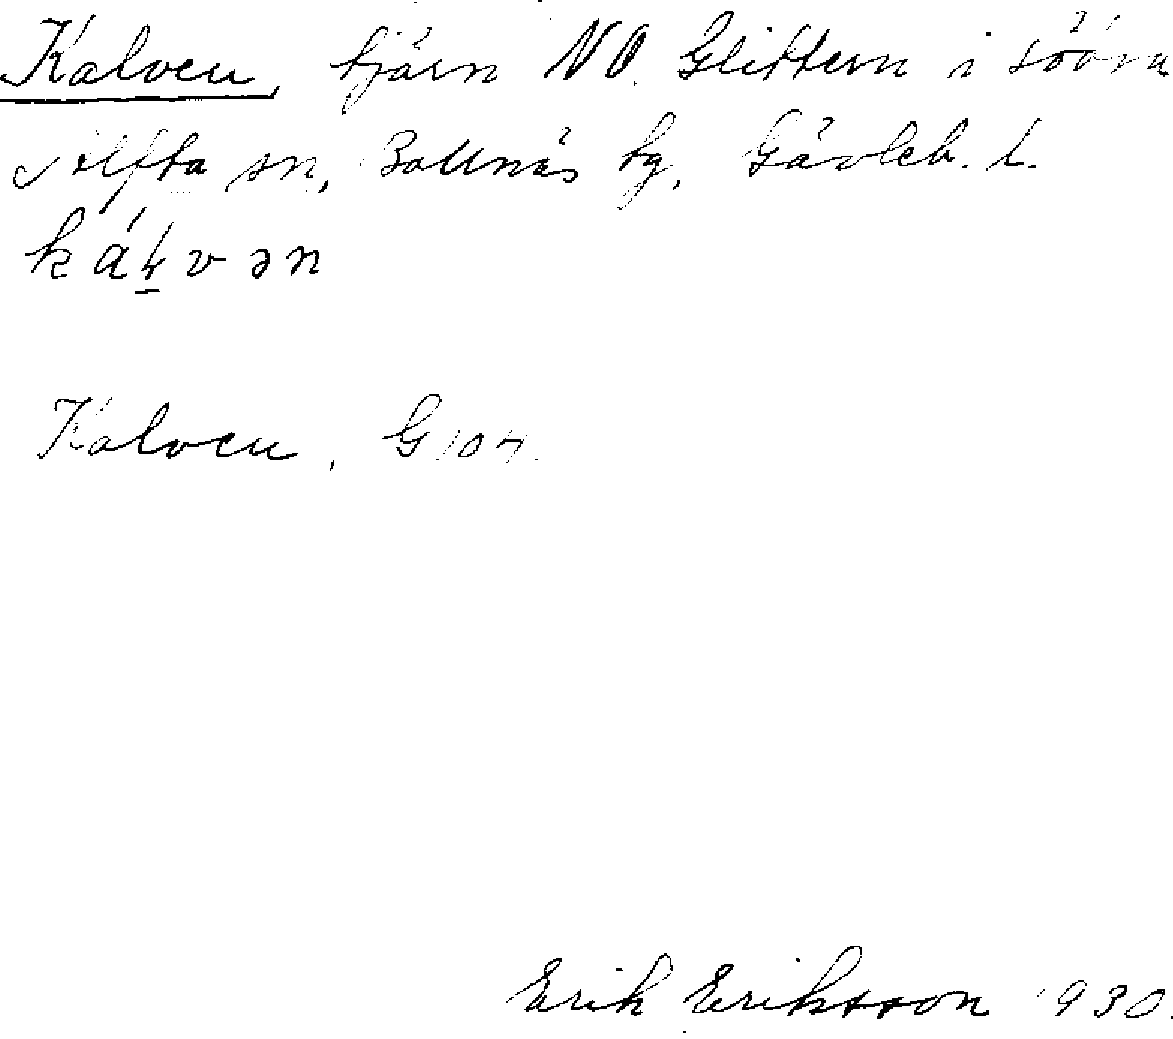 Kalven, tjärn NO. Glittern i södra
Alfta sn, Bollnäs tg, Gävleb. l.
ká̱ɽvən
Kalven, G 107.
Erik Eriksson 1930.